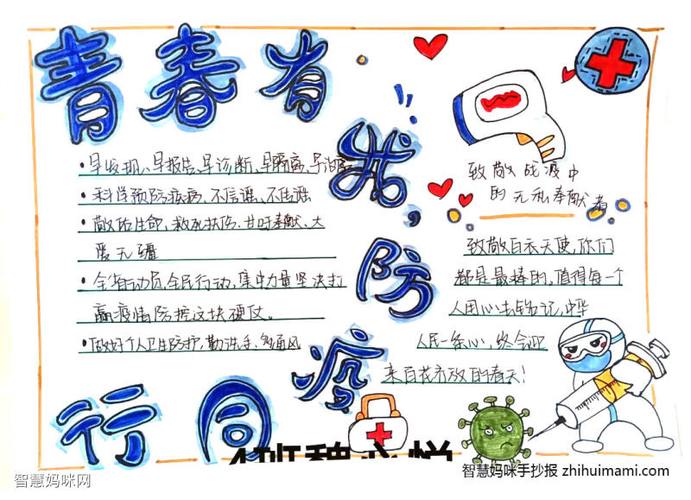 青春有我,防疫同行
·早发现、早报告、早诊断、早隔离、早治疗
·科学预防疾病,不信谣、不传谣
·敬佑生命,救死扶伤、甘于奉献、大
爱无疆
·全省动员,全民行动,集中力量坚决打
赢疫情防控这场硬仗。
·做好个人卫生防护,勤洗手,多通风
致敬战疫中
的无私奉献者
致敬白衣天使,你们
都是最棒的,值得每一个
人用心去铭记,中华
人民一条心,终会迎
来百花齐放的春天!
智慧妈咪网
智慧妈咪手抄报 zhihuimami.com